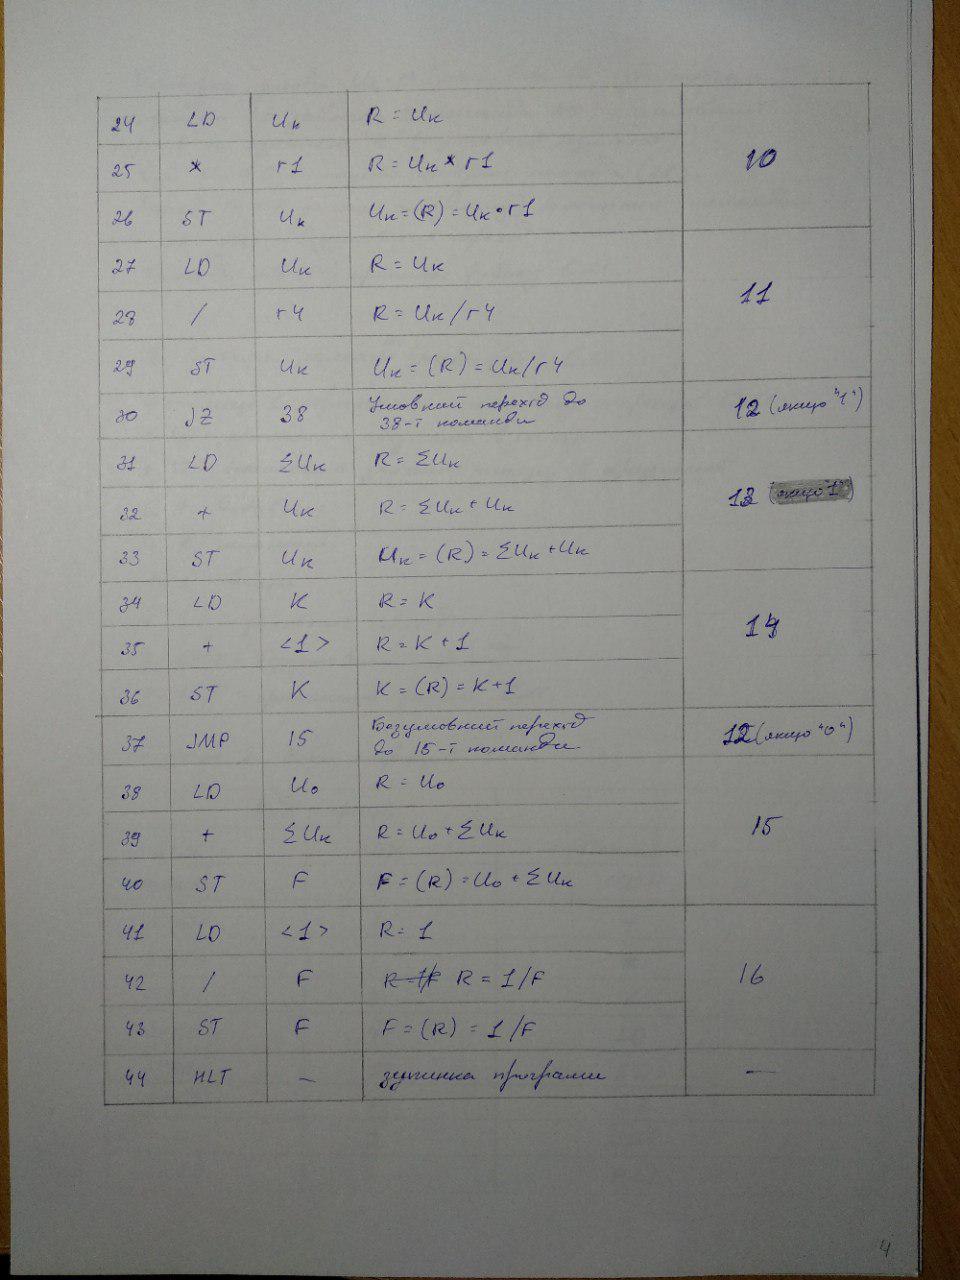 24 LD Uк R = Uк 10
25 * r1 R = Uк * r1
26 ST Uк Uк = (R) = Uк • r1
27 LD Uк R = Uк 11
28 / r4 R = Uк / r4
29 ST Uк Uк = (R) = Uк / r4
30 JZ 38 Умовний перехід до 12 (якщо "1")
38-ї команди
31 LD ΣUк R = ΣUк 13 (якщо "1")
32 + Uк R = ΣUк + Uк
33 ST Uк Uк = (R) = ΣUк + Uк
34 LD K R = K 14
35 + <1> R = K + 1
36 ST K K = (R) = K+1
37 JMP 15 Безумовний перехід 12 (якщо "0")
до 15-ї команди
38 LD U₀ R = U₀ 15
39 + ΣUк R = U₀ + ΣUк
40 ST F F = (R) = U₀ + ΣUк
41 LD <1> R = 1 16
42 / F R = 1/F R = 1/F
43 ST F F = (R) = 1/F
44 HLT — зупинка програми —
4